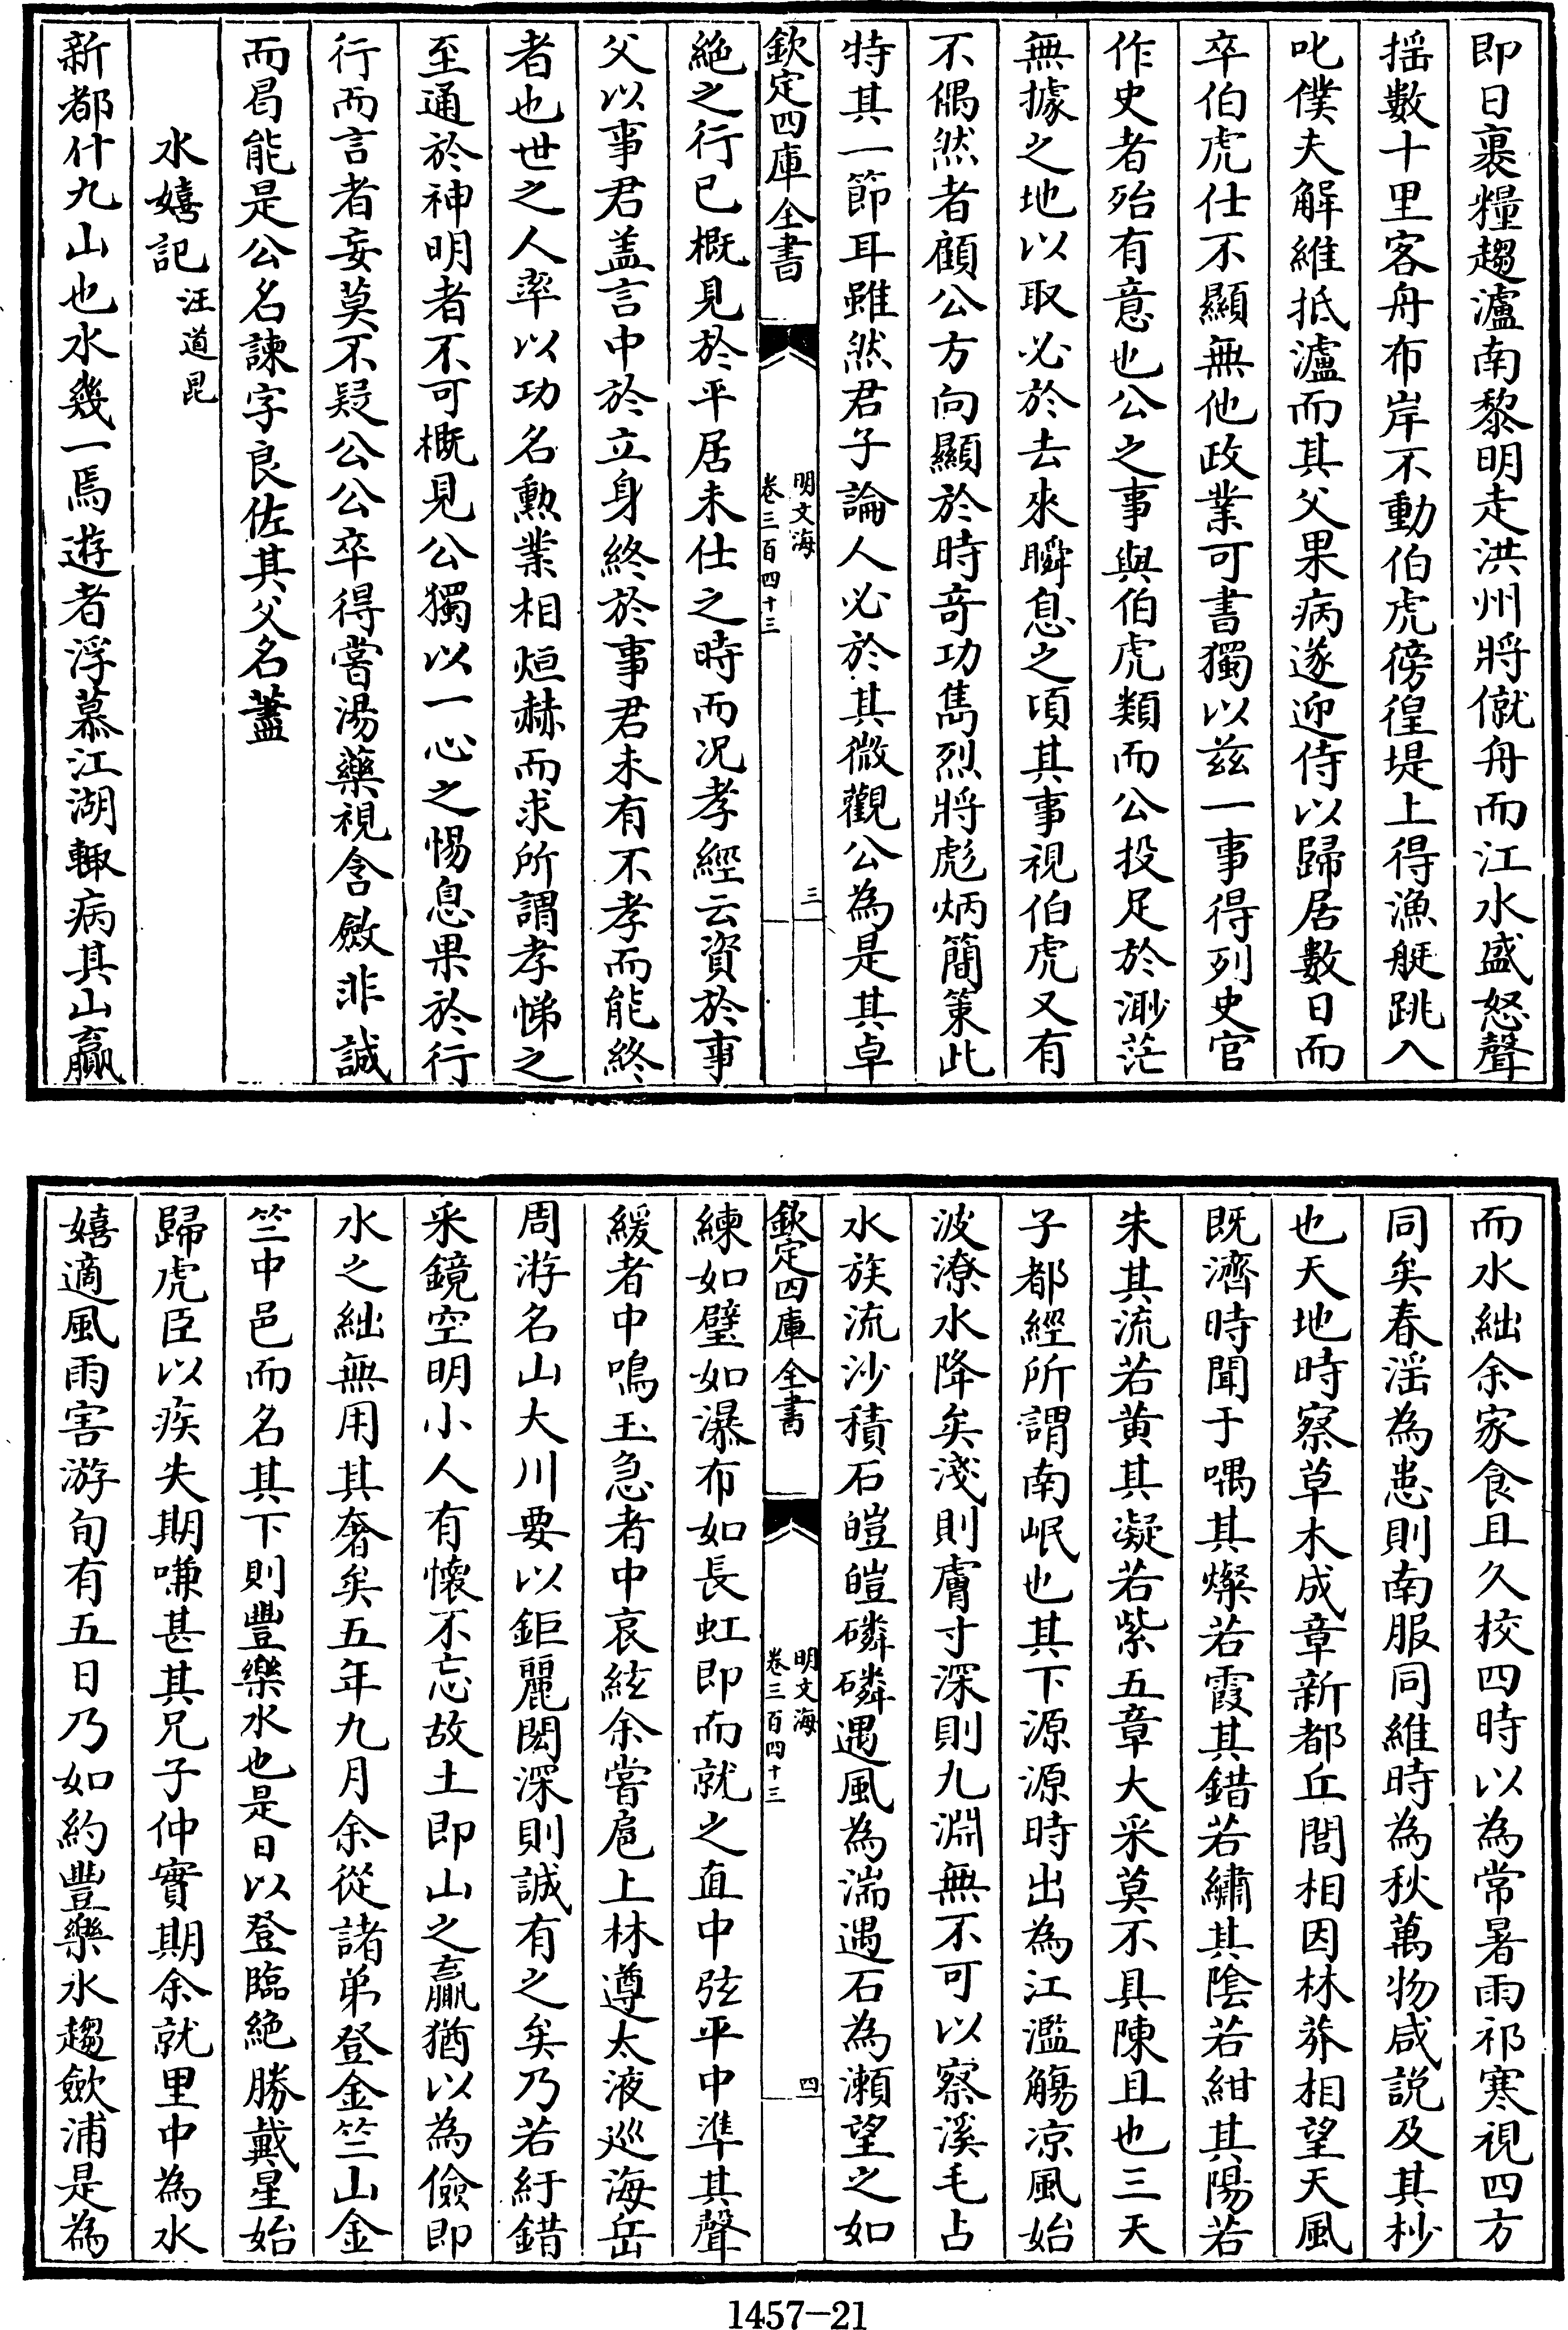 即日裹糧趨瀘南黎明走洪州將僦舟而江水盛怒聲
揺數十里客舟布岸不動伯虎傍徨堤上得漁艇跳入
叱僕夫解維抵瀘而其父果病遂迎侍以歸居數日而
卒伯虎仕不顯無他政業可書獨以兹一事得列史官
作史者殆有意也公之事與伯虎類而公投足於渺茫
無據之地以取必於去來瞬息之頃其事視伯虎又有
不偶然者顧公方向顯於時竒功雋烈將彪炳簡策此
特其一節耳雖然君子論人必於其微觀公為是其卓
欽定四庫全書
明文海
卷三百四十三
三
絶之行已概見於平居未仕之時而况孝經云資於事
父以事君盖言中於立身終於事君未有不孝而能終
者也世之人率以功名勲業相烜赫而求所謂孝悌之
至通於神明者不可概見公獨以一心之惕息果於行
行而言者妄莫不疑公公卒得嘗湯藥視含斂非誠
而曷能是公名諫字良佐其父名藎
水嬉記汪道昆
新都什九山也水幾一焉遊者浮慕江湖輙病其山贏
而水絀余家食且久校四時以為常暑雨祁寒視四方
同矣春滛為患則南服同維時為秋萬物咸説及其杪
也天地時察草木成章新都丘閭相因林莽相望天風
既濟時聞于喁其燦若霞其錯若繡其隂若紺其陽若
朱其流若黄其凝若紫五章大采莫不具陳且也三天
子都經所謂南岷也其下源源時出為江濫觴凉風始
波潦水降矣淺則膚寸深則九淵無不可以察溪毛占
水族流沙積石皚皚磷磷遇風為湍遇石為瀬望之如
欽定四庫全書
明文海
卷三百四十三
四
練如璧如瀑布如長虹即而就之直中弦平中準其聲
緩者中鳴玉急者中哀絃余嘗扈上林遵太液廵海岳
周游名山大川要以鉅麗閎深則誠有之矣乃若紆錯
采鏡空明小人有懷不忘故土即山之贏猶以為儉即
水之絀無用其奢矣五年九月余從諸弟登金竺山金
竺中邑而名其下則豐樂水也是日以登臨絶勝戴星始
歸虎臣以疾失期嗛甚其兄子仲實期余就里中為水
嬉適風雨害游旬有五日乃如約豐樂水趨歙浦是為
1457—21